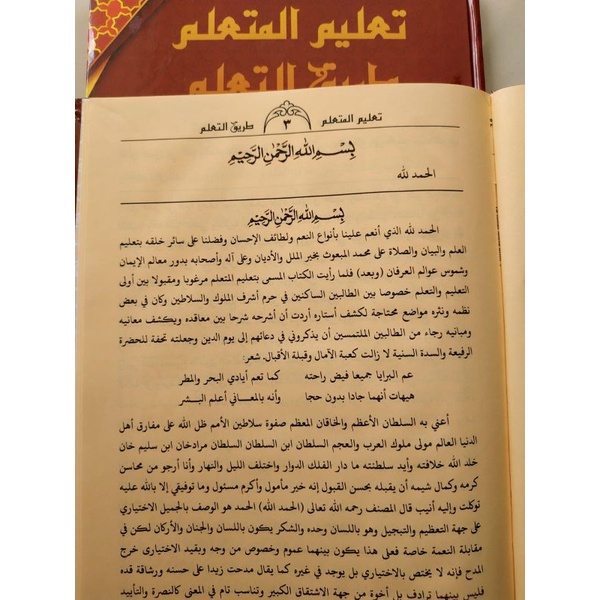 تعليم المتعلم
طريق التعلم
تعليم المتعلم ٣ طريق التعلم
بِسْمِ اللهِ الرَّحْمٰنِ الرَّحِيْمِ
الحمد لله
بِسْمِ اللهِ الرَّحْمٰنِ الرَّحِيْمِ
الحمد لله الذي أنعم علينا بأنواع النعم ولطائف الإحسان وفضلنا على سائر خلقه بتعليم
العلم والبيان والصلاة على محمد المبعوث بخير الملل والأديان وعلى آله وأصحابه بدور معالم الإيمان
وشموس عوالم العرفان (وبعد) فلما رأيت الكتاب المسمى بتعليم المتعلم مرغوبا ومقبولا بين أولى
التعليم والتعلم خصوصا بين الطالبين الساكنين في حرم أشرف الملوك والسلاطين وكان في بعض
نظمه ونثره مواضع محتاجة لكشف أستاره أردت أن أشرحه شرحا بين معاقده ويكشف معانيه
ومبانيه رجاء من الطالبين الملتمسين أن يذكروني في دعائهم إلى يوم الدين وجعلته تحفة للحضرة
الرفيعة والسدة السنية لا زالت كعبة الآمال وقبلة الأقبال. شعر:
عم البرايا جميعا فيض راحته كما تعم أيادي البحر والمطر
هيهات أنهما جادا بدون حجا وأنه بالمعاني أعلم البشر
أعني به السلطان الأعظم والخاقان المعظم صفوة سلاطين الأمم ظل الله على مفارق أهل
الدنيا العالم مولى ملوك العرب والعجم السلطان ابن السلطان السلطان مرادخان ابن سليم خان
خلد الله خلافته وأيد سلطنته ما دار الفلك الدوار واختلف الليل والنهار وأنا أرجو من محاسن
كرمه وكمال شيمه أن يقبله بحسن القبول إنه خير مأمول وأكرم مسئول وما توفيقي إلا بالله عليه
توكلت وإليه أنيب قال المصنف رحمه الله تعالى (الحمد لله) الحمد هو الوصف بالجميل الاختياري
على جهة التعظيم والتبجيل وهو باللسان وحده والشكر يكون باللسان والجنان والأركان لكن في
مقابلة النعمة خاصة فعلى هذا يكون بينهما عموم وخصوص من وجه وبقيد الاختيارى خرج
المدح فإنه لا يختص بالاختياري بل يوجد في غيره كما يقال مدحت زيدا على حسنه ورشاقة قده
فليس بينهما ترادف بل أخوة من جهة الاشتقاق الكبير وتناسب تام في المعنى كالنصرة والتأييد